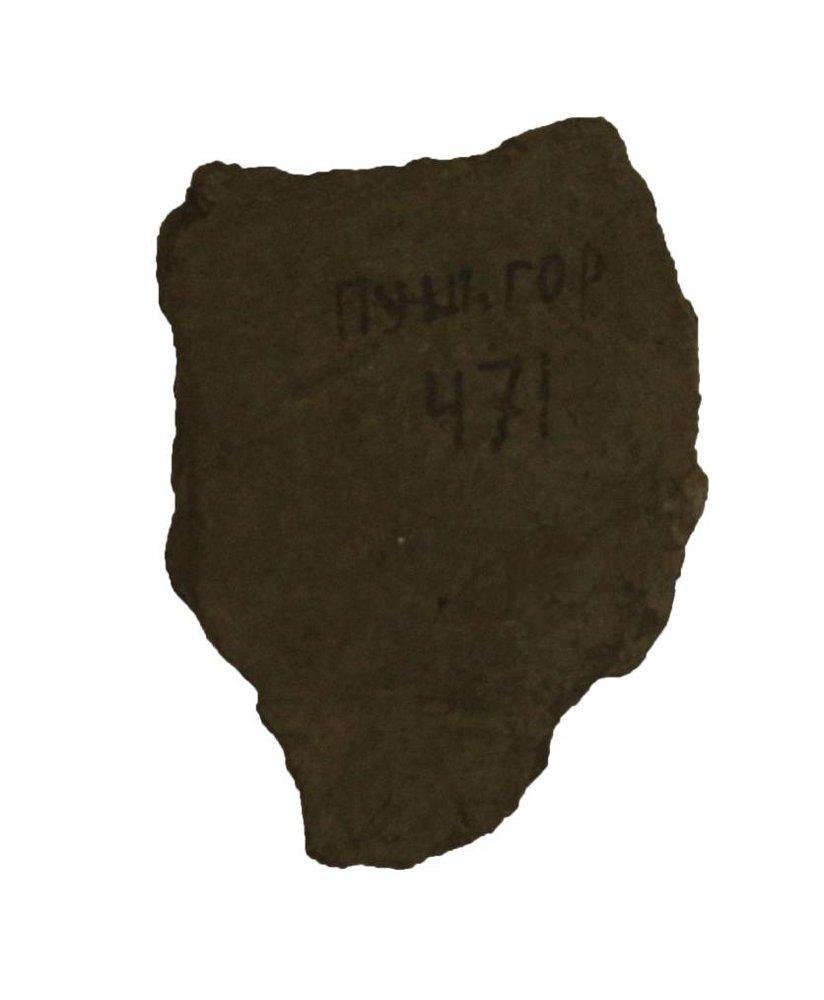 ПУШ.ГОР
471